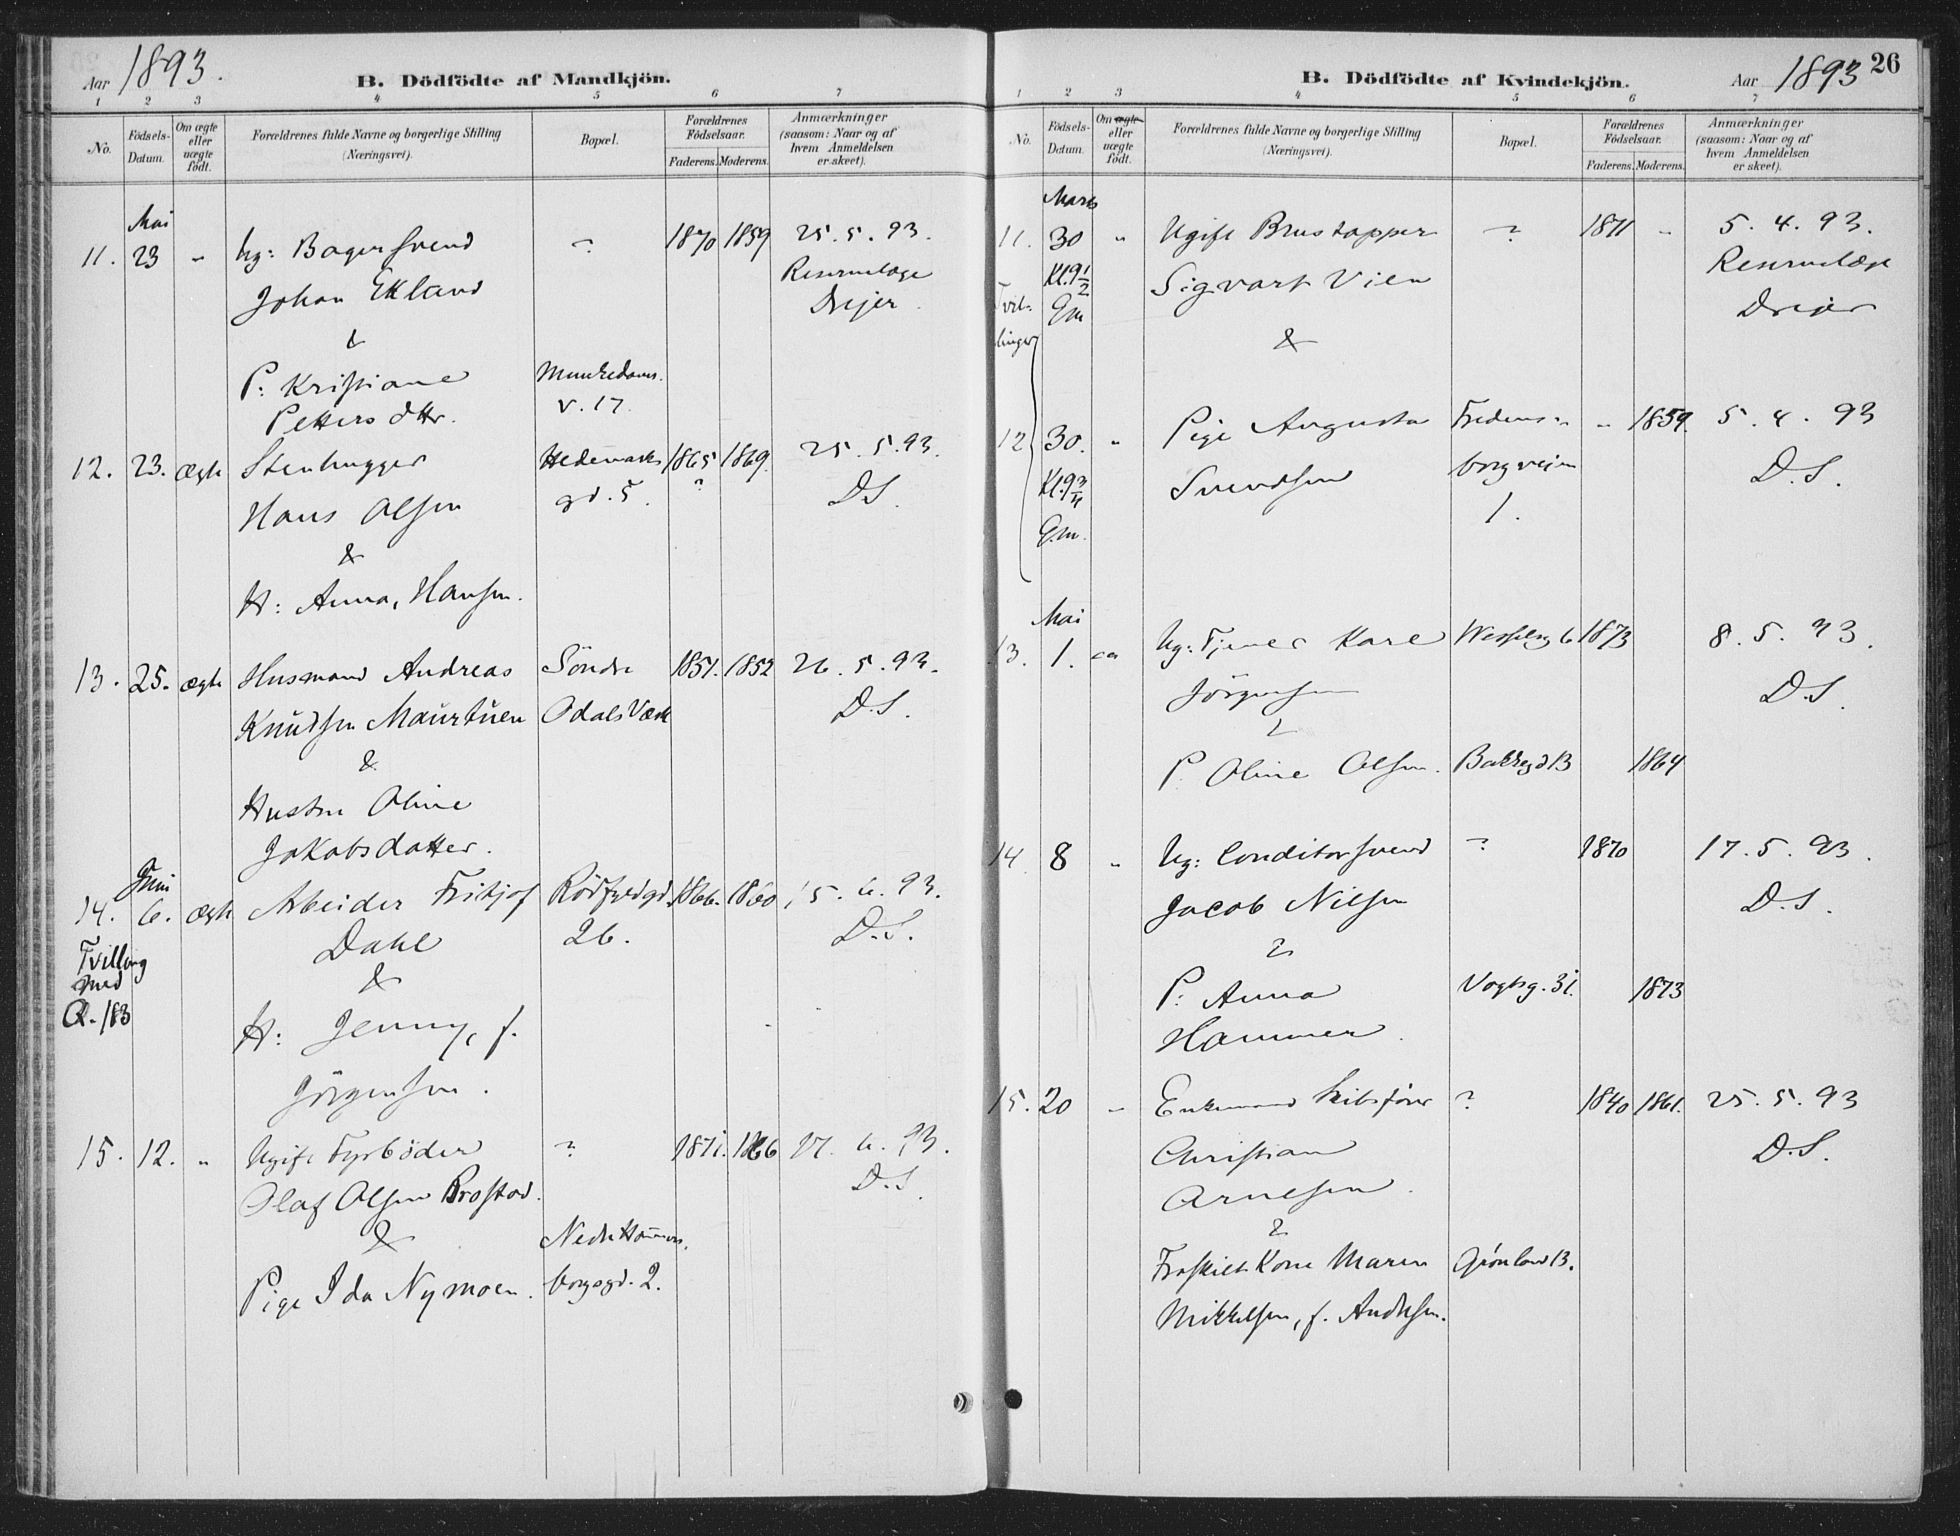 Aar 1893.
B. Dödfödte af Mandkjön.
1 2 3 4 5 6 7
No.
Födsels-Datum.
Om ægte eller uægte födt.
Forældrenes fulde Navne og borgerlige Stilling (Næringsvei).
Bopæl.
Forældrenes Födselsaar.
Faderens. Moderens.
Anmærkninger (saasom: Naar og af hvem Anmeldelsen er skeet).
Mai
11. 23 " Ug: Bagersvend ? 1870 1859 25.5.93.
Johan Ekland Reservelæge
& Drejer.
P: Kristiane Munkedams.
Petters dttr. v. 17.
12. 23. ægte Stenhugger Hedemarks 1865 1869. 25.5.93.
Hans Olsen gd. 5. ? D.S.
&
H: Anna, Hansen.
13. 25. ægte Husmand Andreas Söndre 1851. 1852 26.5.93.
Knudsen Maurtuen Odals Værk D.S.
&
Hustru Oline
Jakobsdatter.
Juni
14. 6. ægte Arbeider Fritjof Rödfyldgd. 1866. 1860 15.6.93.
Tvilling Dahl 26. D.S.
med &
A. 183
H: Jenny, f.
Jörgensen.
15. 12. " Ugift Fyrböder ? 1871. 1866 17.6.93.
Olaf Olsen Brostad. D.S.
& Nedre Hammers.
Pige Ida Nymoen. borgsgd. 2.
26
B. Dödfödte af Kvindekjön.
Aar 1893
1 2 3 4 5 6 7
No.
Födsels-Datum.
Om ægte eller uægte födt.
Forældrenes fulde Navne og borgerlige Stilling (Næringsvei).
Bopæl.
Forældrenes Födselsaar.
Faderens. Moderens.
Anmærkninger (saasom: Naar og af hvem Anmeldelsen er skeet).
Marts
11. 30 " Ugift Brustapper ? 1871 " 5.4.93.
Kl. 9 1/2 Sigvart Vien Reservelæge
Tvil- Em Drejer
linger &
12 30. " Pige Augusta Fredens- " 1859. 5.4.93
Kl. 9 3/4 Svendsen borgveien D.S.
Em. 1.
Mai
13. 1. " Ug: Tjener Karl Wesselsg 6 1873 8.5.93.
Jörgensen D.S.
&
P. Oline Olsen. Bakkegd 13 1864
14. 8 " Ug: Conditorsvend ? 1870 17.5.93.
Jacob Nilsen D.S.
&
P: Anna Vogtsg. 31. 1873
Hammer.
15. 20 " Enkemand Skibsfører ? 1840 1861. 25.5.93
Christian D.S.
Arnesen.
&
Fraskilt Kone Maren Grönland 13.
Mikkelsen, f. Andersen.